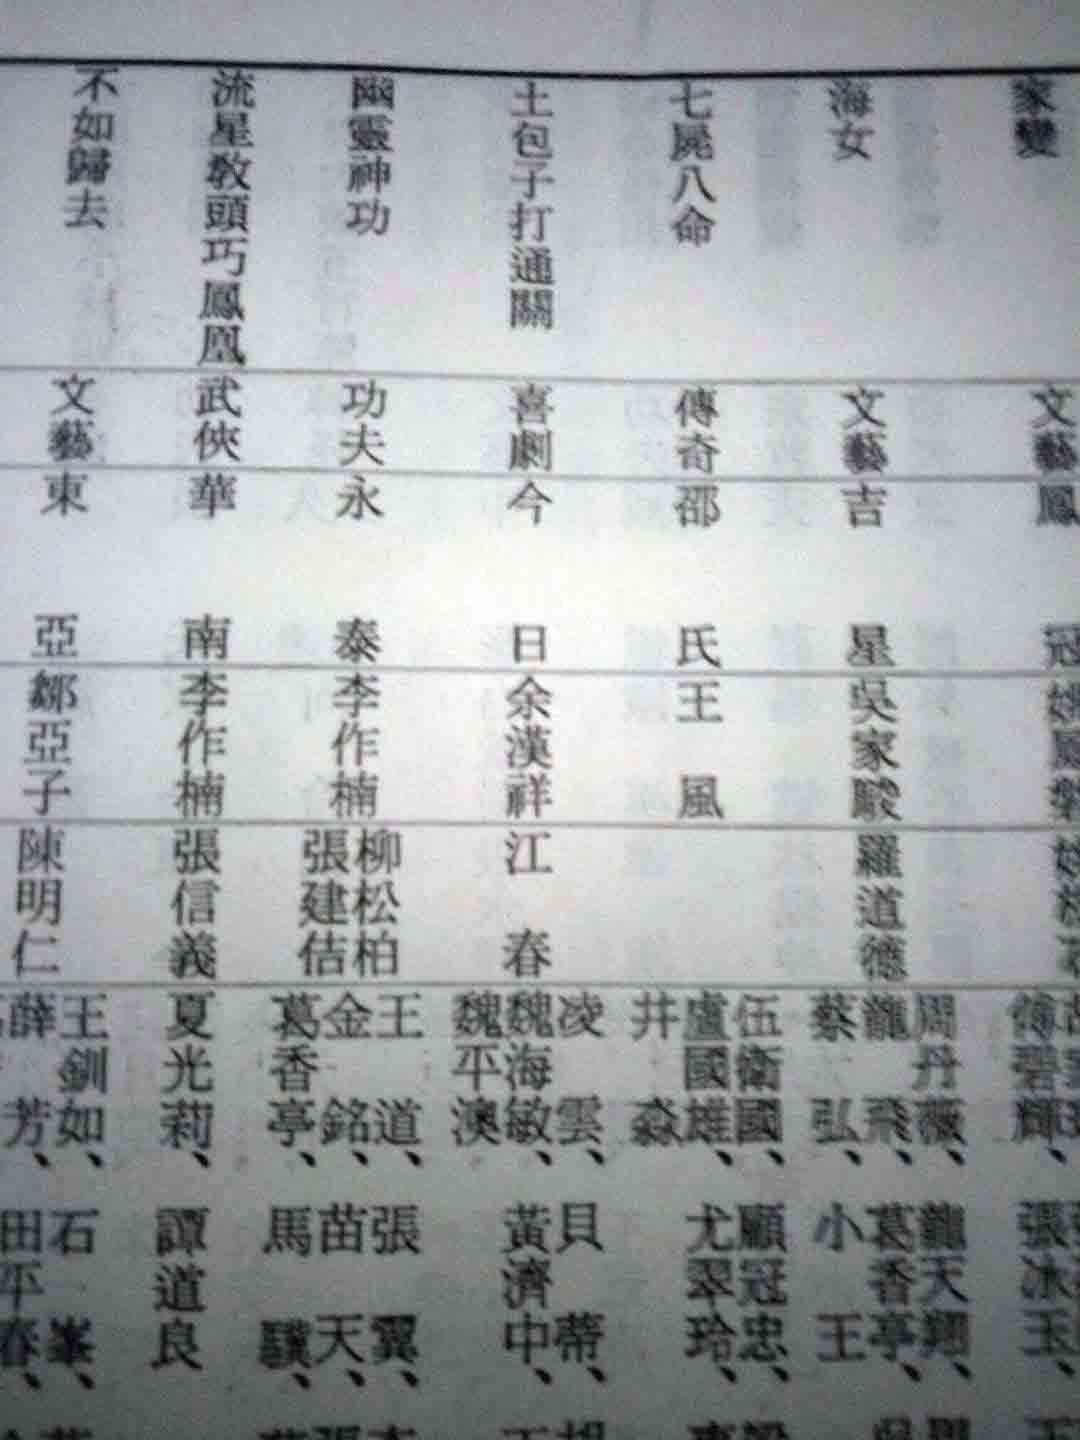 家變
文藝
鳳
海女
文藝
吉星
吳家駿
羅道德
周丹薇、龍天翔、
龍飛、葛香亭、
蔡弘、小王
七屍八命
傳奇
邵氏
王風
伍衛國、顧冠忠、
盧國雄、尤翠玲、
井淼
土包子打通關
喜劇
今日
余漢祥
江春
凌雲、貝蒂、
魏海敏、黃濟中、
魏平澳
幽靈神功
功夫
永泰
李作楠
柳松柏
張建佶
王道、張翼、
金銘、苗天、
葛香亭、馬驥、
流星教頭巧鳳凰
武俠
華南
李作楠
張信義
夏光莉、譚道良
不如歸去
文藝
東亞
鄒亞子
陳明仁
王釧如、石峯、
薛芳、田平春、